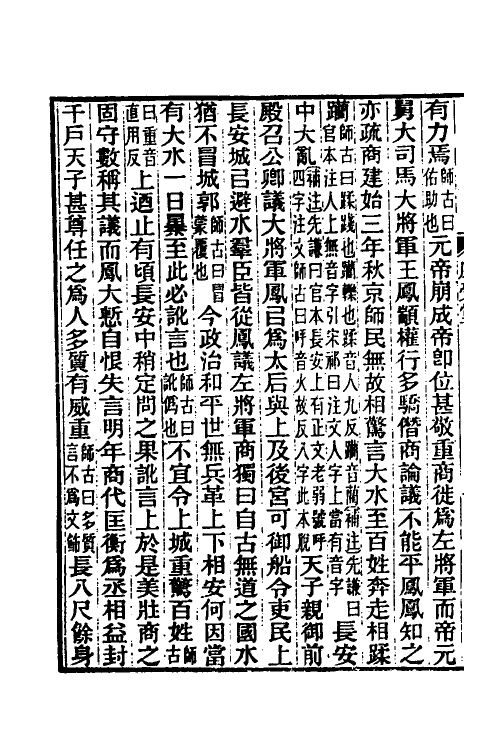 有力焉師古曰佑助也元帝崩成帝卽位甚敬重商徙爲左將軍而帝元
舅大司馬大將軍王鳳顓權行多驕僭商論議不能平鳳鳳知之
亦疏商建始三年秋京師民無故相驚言大水至百姓奔走相蹂
躪師古曰蹂踐也躪轢也蹂音人九反躪音藺補注先謙曰官本注人上無音字引宋祁曰注文人字上當有音字長安
中大亂補注先謙曰官本長安上有正文老弱號呼四字注文師古曰呼音火故反八字此本脫天子親御前
殿召公卿議大將軍鳳㠯爲太后與上及後宮可御船令吏民上
長安城㠯避水羣臣皆從鳳議左將軍商獨曰自古無道之國水
猶不冒城郭師古曰冒蒙覆也今政治和平世無兵革上下相安何因當
有大水一日㬥至此必訛言也師古曰訛僞也不宜令上城重驚百姓師古
曰重音直用反上迺止有頃長安中稍定問之果訛言上於是美壯商之
固守數稱其議而鳳大慙自恨失言明年商代匡衡爲丞相益封
千戶天子甚尊任之爲人多質有威重師古曰多質言不爲文飾長八尺餘身